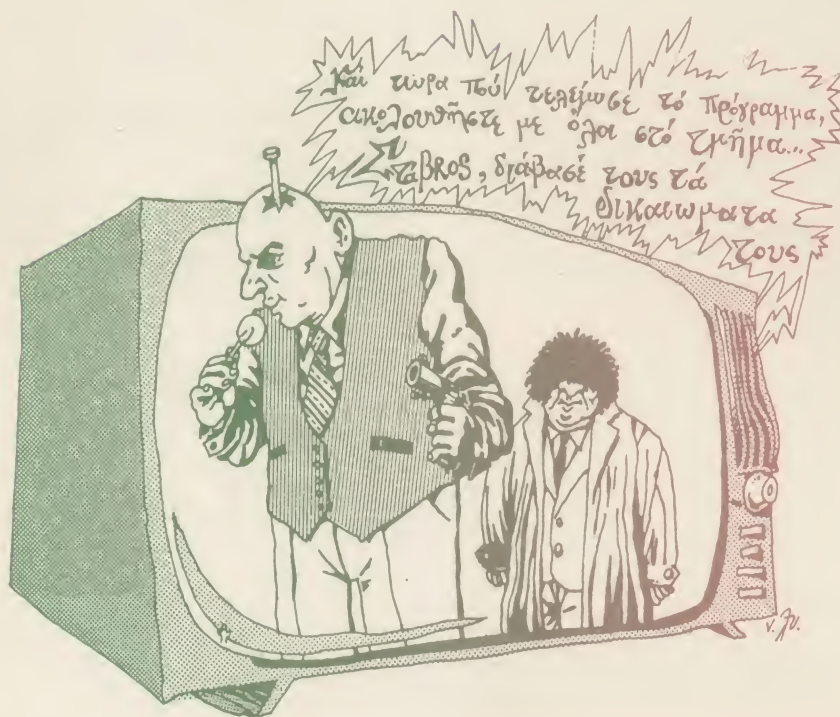 Καί τώρα πού τελείωσε τό πρόγραμμα,
ακολουθῆστε με όλοι στό τμῆμα...
ΣταβROS, διάβασέ τους τά
δικαιωματα
τους